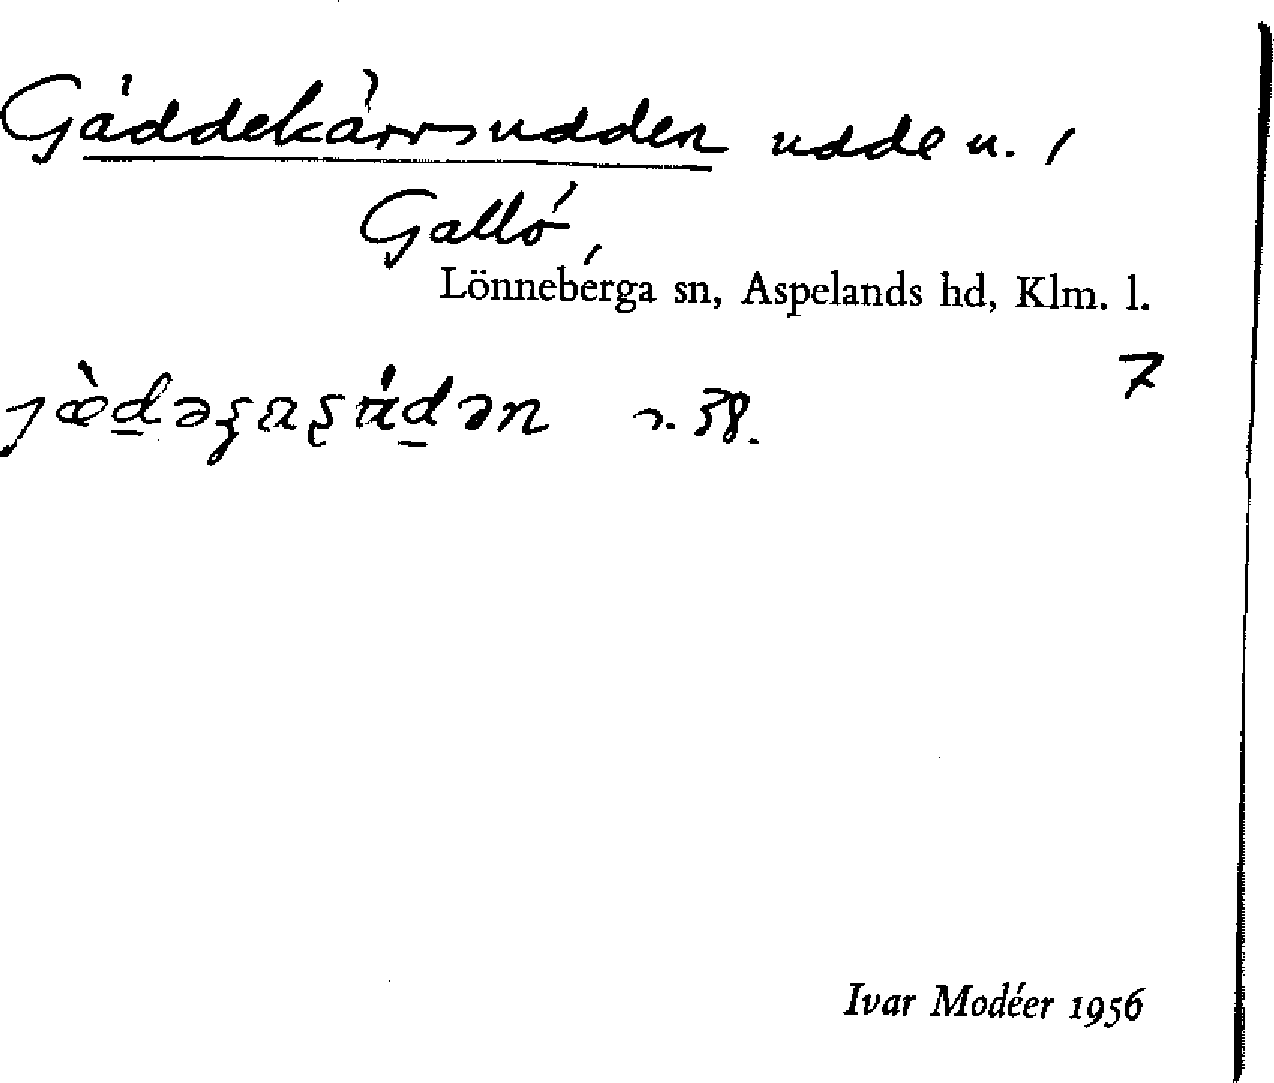 Gäddekärrsudden udde u. /
Gallö,
Lönneberga sn, Aspelands hd, Klm. l.
7
s. 38.
Ivar Modéer 1956